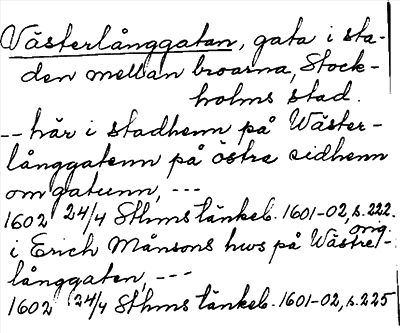 Västerlånggatan, gata i sta-
den mellan broarna, Stock-
holms stad.
-- här i stadhenn på Wäster-
långgatenn på östre sidhenn
om gatunn, ---
1602 24/4 Sthms tänkeb. 1601-02, s. 222.
orig.
i Erich Månsons hws på Wästre-
långgaten, ---
1602 24/4 Sthms tänkeb. 1601-02, s. 225